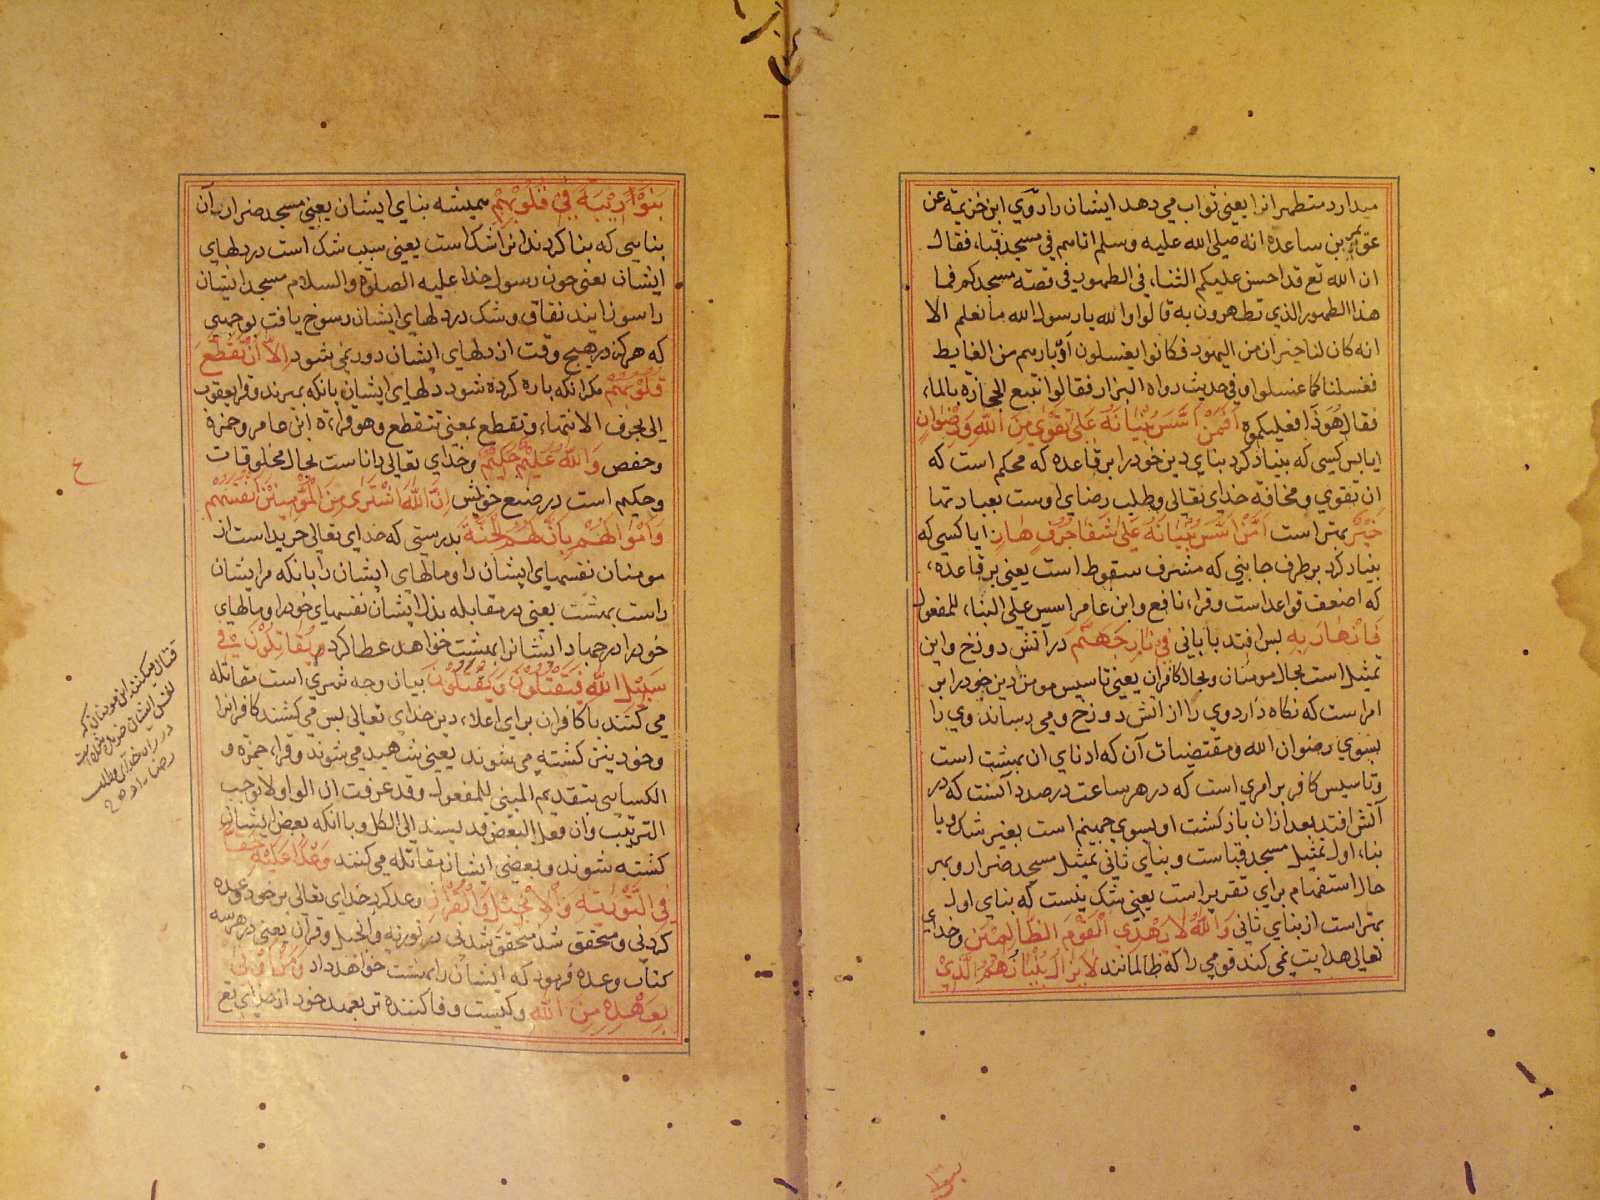 میدارد متطهرانرا یعنی ثواب می دهد ایشان را و روی ابن خزیمة عن
عویمر بن ساعده انه صلی الله علیه وسلم اتاهم فی مسجد قبا، فقال
ان الله تع قد احسن علیکم الثناء فی الطهور فی قصة مسجدکم فما
هذا الطهور الذی تطهرون به قالوا والله یا رسول الله ما نعلم الا
انه کان لنا جیران من الیهود فکانوا یغسلون ادبارهم من الغایط
فغسلنا کما غسلوا و فی حدیث رواه البزار فقالوا نتبع الحجارة بالماء
فقال هو ذا فعلیکموه أَفَمَنْ أَسَّسَ بُنْيَانَهُ عَلَى تَقْوَى مِنَ اللَّهِ وَرِضْوَانٍ
ایا پس کسی که بنیاد کرد بنای دین خود را بر قاعده که محکم است که
ان تقوی و مخافة خدای تعالی و طلب رضای اوست بعبادتها
خَيْرٌ بهتر است أَمْ مَنْ أَسَّسَ بُنْيَانَهُ عَلَى شَفَا جُرُفٍ هَارٍ ایا کسی که
بنیاد کرد بر طرف جایی که مشرف سقوط است یعنی بر قاعده
که اضعف قواعد است و قراء نافع و ابن عامر اسس علی البناء للمفعول
فَانْهَارَ بِهِ پس افتد با بانی فِي نَارِ جَهَنَّمَ در آتش دوزخ و این
تمثیل است بحال مومنان و بحال کافران یعنی تاسیس مومن دین خود را بر
امر است که نگاه دارد وی را از آتش دوزخ و می رساند وی را
بسوی رضوان الله و مقتضیات آن که ادنای ان بهشت است
و تاسیس کافر بر امری است که در هر ساعت در صدد آنست که در
آتش افتد بعد از ان بازگشت او بسوی جهنم است بغیر شک و یا
بناء اول تمثیل مسجد قباست و بنای ثانی تمثیل مسجد ضرار و بهر
حال استفهام برای تقریر است یعنی شک نیست که بنای اول
بهتر است از بنای ثانی وَاللَّهُ لَا يَهْدِي الْقَوْمَ الظَّالِمِينَ و خدای
تعالی هدایت نمی کند قومی را که ظالمانند لَا يَزَالُ بُنْيَانُهُمُ الَّذِي
بَنَوْا رِيبَةً فِي قُلُوبِهِمْ همیشه بنای ایشان یعنی مسجد ضرار آن
بنایی که بنا کردند انرا شک است یعنی سبب شک است در دلهای
ایشان یعنی چون رسول خدا علیه الصلوة والسلام مسجد ایشان
را سوزانیدند نفاق و شک در دلهای ایشان رسوخ یافت بوجهی
که هرگز در هیچ وقت از دلهای ایشان دور نمی شود إِلَّا أَنْ تَقَطَّعَ
قُلُوبُهُمْ مگر انکه پاره کرده شود دلهای ایشان بانکه بمیرند و قرا یعقوب
الی بحرف الانتهاء و تقطع بمعنی تتقطع و هو قراءة ابن عامر و حمزة
و حفص وَاللَّهُ عَلِيمٌ حَكِيمٌ و خدای تعالی داناست بحال مخلوقات
و حکیم است در صنیع خویش إِنَّ اللَّهَ اشْتَرَى مِنَ الْمُؤْمِنِينَ أَنْفُسَهُمْ
وَأَمْوَالَهُمْ بِأَنَّ لَهُمُ الْجَنَّةَ بدرستی که خدای تعالی خریداست از
مومنان نفسهای ایشان را و مالهای ایشان را بانکه مر ایشان
راست بهشت یعنی در مقابله بذل ایشان نفسهای خود را و مالهای
خود را در جهاد ایشانرا بهشت خواهد عطا کرد يُقَاتِلُونَ فِي
سَبِيلِ اللَّهِ فَيَقْتُلُونَ وَيُقْتَلُونَ بیان وجه شری است مقاتله
می کنند با کافران برای اعلاء دین خدای تعالی پس می کشند کافرانرا
و خود نیز کشته می شوند یعنی شهید می شوند و قراء حمزه و
الکسایی بتقدیم المبنی للمفعول و قد عرفت ان الواو لا توجب
الترتیب و ان فعل البعض قد یسند الی الکل و با انکه بعض ایشان
کشته شوند و بعضی ایشان مقاتله می کنند وَعْدًا عَلَيْهِ حَقًّا
فِي التَّوْرَاةِ وَالْإِنْجِيلِ وَالْقُرْآنِ وعد کرد خدای تعالی بر خود وعده
کردنی و محقق شد محقق شدنی در توریة و انجیل و قرآن یعنی در هر سه
کتاب وعده فرمود که ایشان را بهشت خواهد داد وَمَنْ أَوْفَى
بِعَهْدِهِ مِنَ اللَّهِ و کیست وفا کننده تر بعهد خود از خدای تع
قتال میکنند این مومنان که
نفس ایشان خریده شده است
در راه خدای بطلب
رضا او